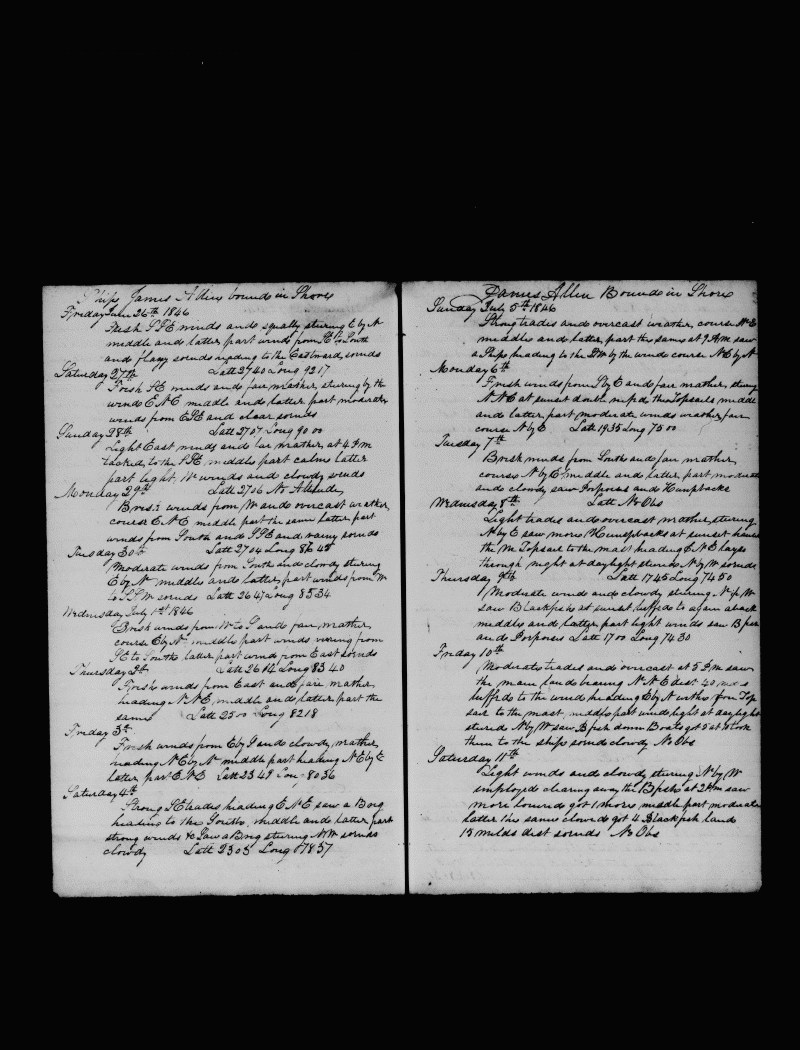 Ship James Allen bound in Shore
Friday June 26th 1846
Fresh SSE winds and squally stering E by N
middle and latter part wind from SE to South
and fogy sounds heading to the Eastward sounds
Saturday 27th Latt 2740 Long 9217
Fresh SE winds and fare weather, stering by the
wind ENE middle and latter part moderate
winds from ESE and clear sounds
Sunday 28th Latt 2707 Long 90 00
Light East winds and fare weather, at 4 PM
tacked to the SSE middle part calm latter
part light W winds and cloudy sounds
Monday 29th Latt 2716 No Altitude
Brisk winds from W and overcast weather,
course ENE middle part the same latter part
winds from South and SSE and rainy sounds
Tuesday 30th Latt 2704 Long 86 48
Moderate winds from South and cloudy stering
E by N middle and latter, part winds from W
to SSW sounds Latt 26 47 Long 85 34
Wednesday July 1st 1846
Brisk winds from W to S and fair weather,
course E by N middle part winds veering from
SE to South latter part wind from East sounds
Thursday 2d Latt 26 14 Long 83 40
Fresh winds from East and fare weather
heading NNE, middle and latter part the
same Latt 2500 Long 8218
Friday 3d
Fresh winds from E by S and cloudy weather,
heading NE by N middle part heading NE by E
latter part ENE Latt 23 49 Long 8036
Saturday 4th
Strong SE trades heading ENE saw a Brig
heading to the South, middle and latter part
strong winds &c Saw a Brig stering NW sounds
cloudy Latt 2305 Long 7857
James Allen Bound in Shore
Sunday July 5th 1846
Strong trades and overcast weather, course NE
middle and latter, part the same at 9 AM saw
a Ship heading to the SW by the wind course NE by N
Monday 6th
Fresh winds from S by E and fare weather, stering
NNE at sunset double reefed the Topsails middle
and latter, part moderate winds weather fair
course N by E Latt 1935 Long 7500
Tuesday 7th
Brisk winds from South and fair weather,
course N by E, middle and latter, part moderate
and cloudy saw Porpoises and Humpbacks
Wednesday 8th Latt No Obs
Light trades and overcast weather stering
N by E saw more Humpbacks at sunset hauled
the M Topsail to the mast heading ENE layed
through night at daylight stered N by W sounds
Thursday 9th Latt 1745 Long 7450
Moderate winds and cloudy stering N by W
saw Blackfish at sunset luffed to again aback
middle and latter part light winds saw B fish
and Porpoises Latt 1700 Long 7430
Friday 10th
Moderate trades and overcast at 5 PM saw
the main land bearing NNE dist 40 miles
luffed to the wind heading E by N with Fore Top
sail to the mast, middle part winds light at daylight
stered N by W saw B fish down Boats got 5 at 10 took
them to the ship sounds cloudy No Obs
Saturday 11th
Light winds and cloudy stering N by W
imployed clearing away the B fish at 2 PM saw
more lowered got 1 more middle part moderate
latter the same lowered got 4 Blackfish land
15 miles dist sounds No Obs